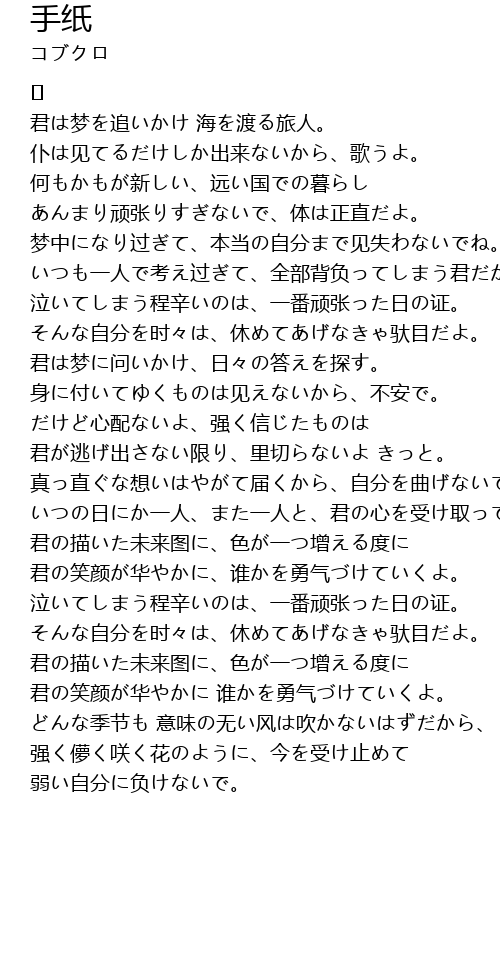 手纸
コブクロ
君は梦を追いかけ 海を渡る旅人。
仆は见てるだけしか出来ないから、歌うよ。
何もかもが新しい、远い国での暮らし
あんまり顽张りすぎないで、体は正直だよ。
梦中になり过ぎて、本当の自分まで见失わないでね。
いつも一人で考え过ぎて、全部背负ってしまう君だか
泣いてしまう程辛いのは、一番顽张った日の证。
そんな自分を时々は、休めてあげなきゃ驮目だよ。
君は梦に问いかけ、日々の答えを探す。
身に付いてゆくものは见えないから、不安で。
だけど心配ないよ、强く信じたものは
君が逃げ出さない限り、里切らないよ きっと。
真っ直ぐな想いはやがて届くから、自分を曲げないで
いつの日にか一人、また一人と、君の心を受け取って
君の描いた未来图に、色が一つ增える度に
君の笑颜が华やかに、谁かを勇气づけていくよ。
泣いてしまう程辛いのは、一番顽张った日の证。
そんな自分を时々は、休めてあげなきゃ驮目だよ。
君の描いた未来图に、色が一つ增える度に
君の笑颜が华やかに 谁かを勇气づけていくよ。
どんな季节も 意味の无い风は吹かないはずだから、
强く儚く咲く花のように、今を受け止めて
弱い自分に负けないで。